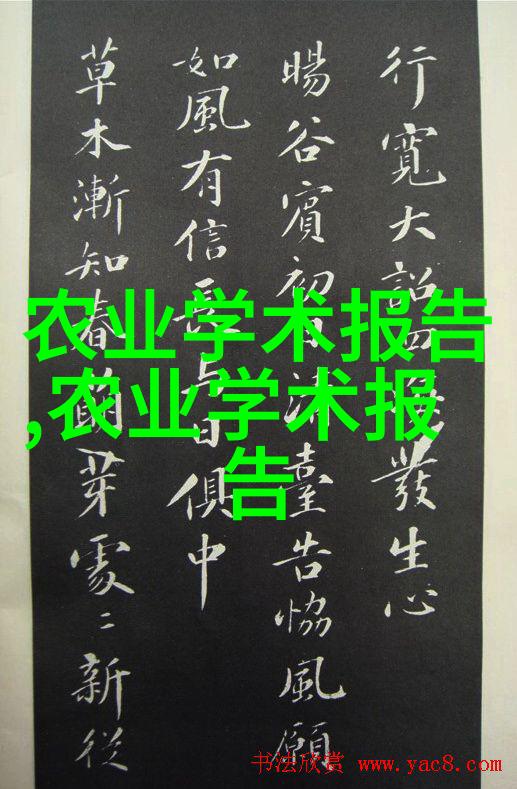 行寬大詔四海發生心
暘谷賓初日清臺告協風願
如風有信長与日俱中
草木漸知春萌芽處〻新從
农业学术报告
,农业学术报
告
书法欣赏 www.yac8.com